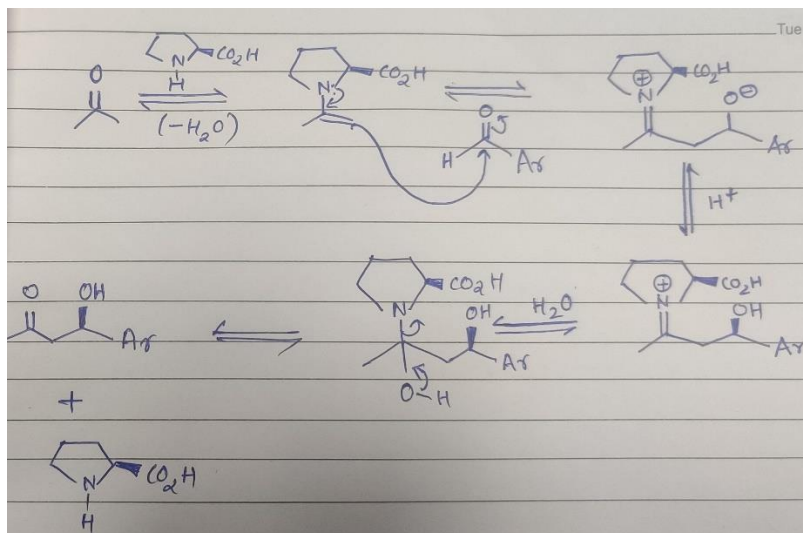 Tue
O
N
H
CO₂H
(-H₂O)
N
CO₂H
O
H
Ar
⊕
N
CO₂H
O⊖
Ar
H⁺
⊕
N
CO₂H
OH
Ar
H₂O
N
CO₂H
OH
Ar
O-H
O
OH
Ar
+
N
H
CO₂H